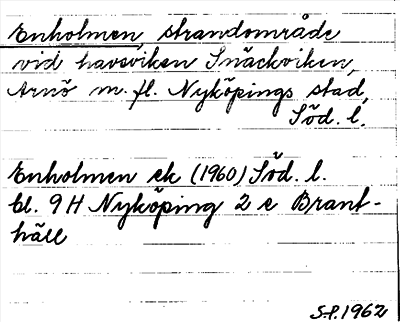 Enholmen, strandområde
vid havsviken Snäckviken,
Arnö m. fl. Nyköpings stad,
Söd. l.
Enholmen ek (1960) Söd. l.
bl. 9 H Nyköping 2 c Brant-
häll
S.P. 1962